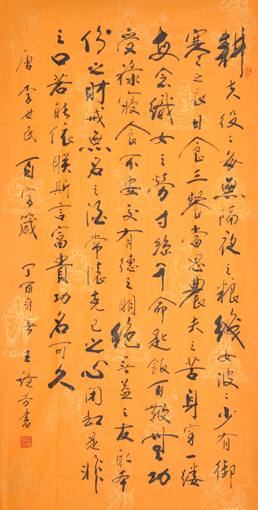 耕夫役役多無隔夜之糧織女波波少有御
寒之衣日食三餐當思農夫之苦身穿一縷
每念織女之勞寸絲千命匙飯百鞭無功
受祿寢食不安交有德之朋絕無益之友取本
份之財戒無名之酒常懷克己之心閉卻是非
之口若能依朕斯言富貴功名可久
唐 李世民 百字箴 丁酉 王 書